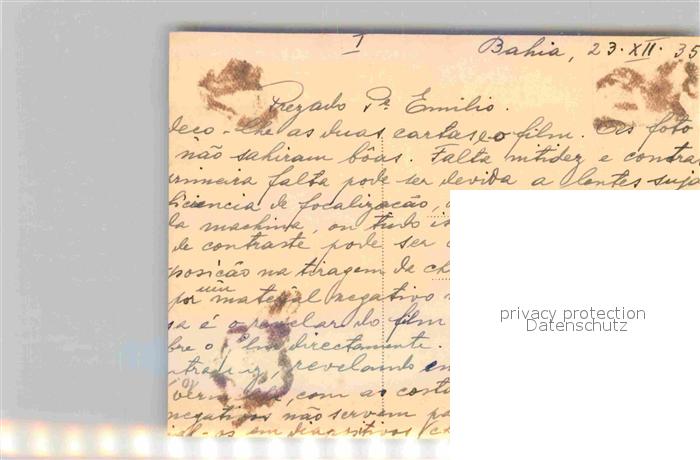 I Bahia, 23.XII.35
Prezado Pe Emilio.
deço-lhe as duas cartas e o film. As foto
não sahiram bôas. Falta nitidez e contra
primeira falta pode ser devida a lentes suja
ficiencia de focalização,
da machina, ou tudo is
de contraste pode ser
posição na tiragem da ch
por um material negativo
sa é o revelar do film
bre o film directamente.
revelando em
com as costa
negativos não servem pa
ial-os em diapositivos
privacy protection
Datenschutz